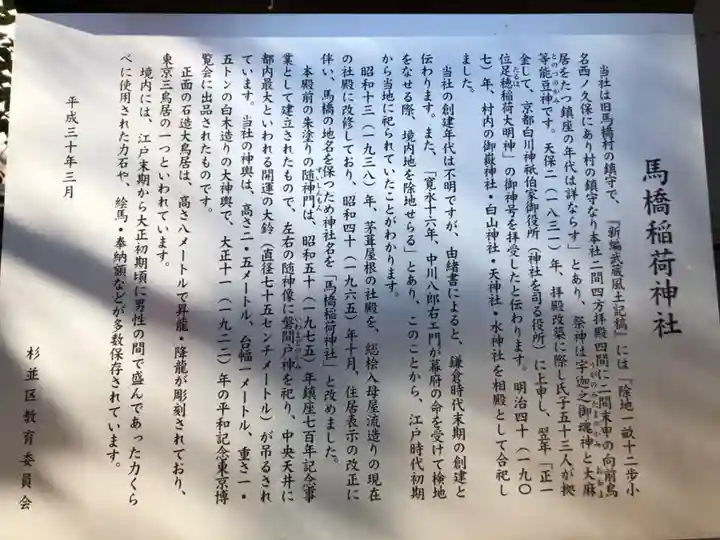 馬橋稲荷神社
当社は旧馬橋村の鎮守で、『新編武蔵風土記稿』には「除地一畝十二歩小
名西ノ久保にあり村の鎮守なり本社二間四方拝殿四間に二間末申の向前鳥
居をたつ鎮座の年代は詳ならす」とあり、祭神は宇迦之御魂神と大麻
とのつのかみ
うかのみたまのかみ
等能豆神です。天保二（一八三一）年、拝殿改築に際し氏子五十三人が拠
金して、京都白川神祇伯家御役所（神社を司る役所）に上申し、翌年「正一
位足穂稲荷大明神」の御神号を拝受したと伝わります。明治四十（一九〇
たるほ
七）年、村内の御嶽神社・白山神社・天神社・水神社を相殿として合祀し
ました。
当社の創建年代は不明ですが、由緒書によると、鎌倉時代末期の創建と
伝わります。また、「寛永十六年、中川八郎右エ門が幕府の命を受けて検地
をなせる際、境内地を除地せらる」とあり、このことから、江戸時代初期
から当地に祀られていたことがわかります。
昭和十三（一九三八）年、茅葺屋根の社殿を、総桧入母屋流造りの現在
の社殿に改修しており、昭和四十（一九六五）年十月、住居表示の改正に
伴い、馬橋の地名を保つため神社名を「馬橋稲荷神社」と改めました。
本殿前の朱塗りの随神門は、昭和五十（一九七五）年鎮座七百年記念事
ずいしんもん
業として建立されたもので、左右の随神像に磐間戸神を祀り、中央天井に
いわまどのかみ
都内最大といわれる開運の大鈴（直径七十五センチメートル）が吊るされ
ています。当社の神輿は、高さ二・五メートル、台幅一メートル、重さ一・
五トンの白木造りの大神輿で、大正十一（一九二二）年の平和記念東京博
覧会に出品されたものです。
正面の石造大鳥居は、高さ八メートルで昇龍・降龍が彫刻されており、
東京三鳥居の一つといわれています。
境内には、江戸末期から大正初期頃に男性の間で盛んであった力くら
べに使用された力石や、絵馬・奉納額などが多数保存されています。
平成三十年三月
杉並区教育委員会